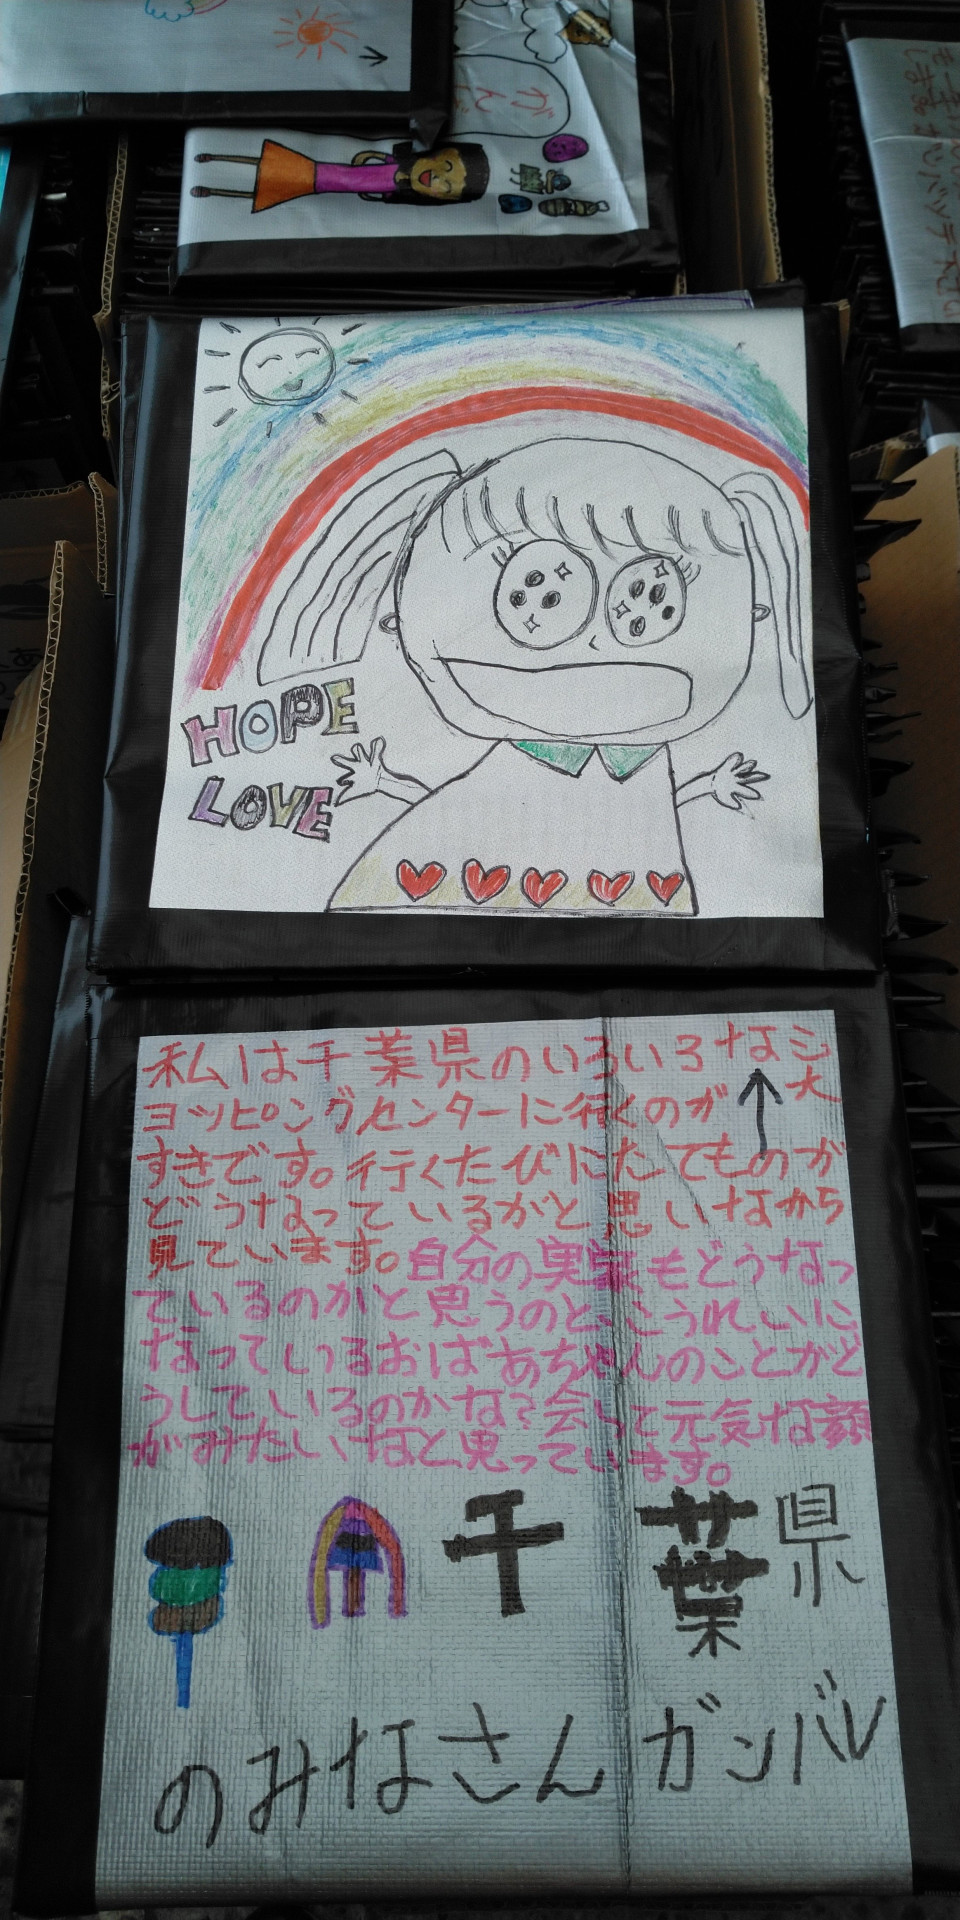 HOPE
LOVE
私は千葉県のいろいろなシ
大
ョッピングセンターに行くのが
すきです。行くたびにたてものが
どうなっているがと思いながら
見ています。自分の実家もどうなっ
ているのかと思うのと、こうれいに
なっているおばあちゃんのことがど
うしているのかな？会って元気な顔
がみたいなと思っています。
千葉県
のみなさんガンバレ